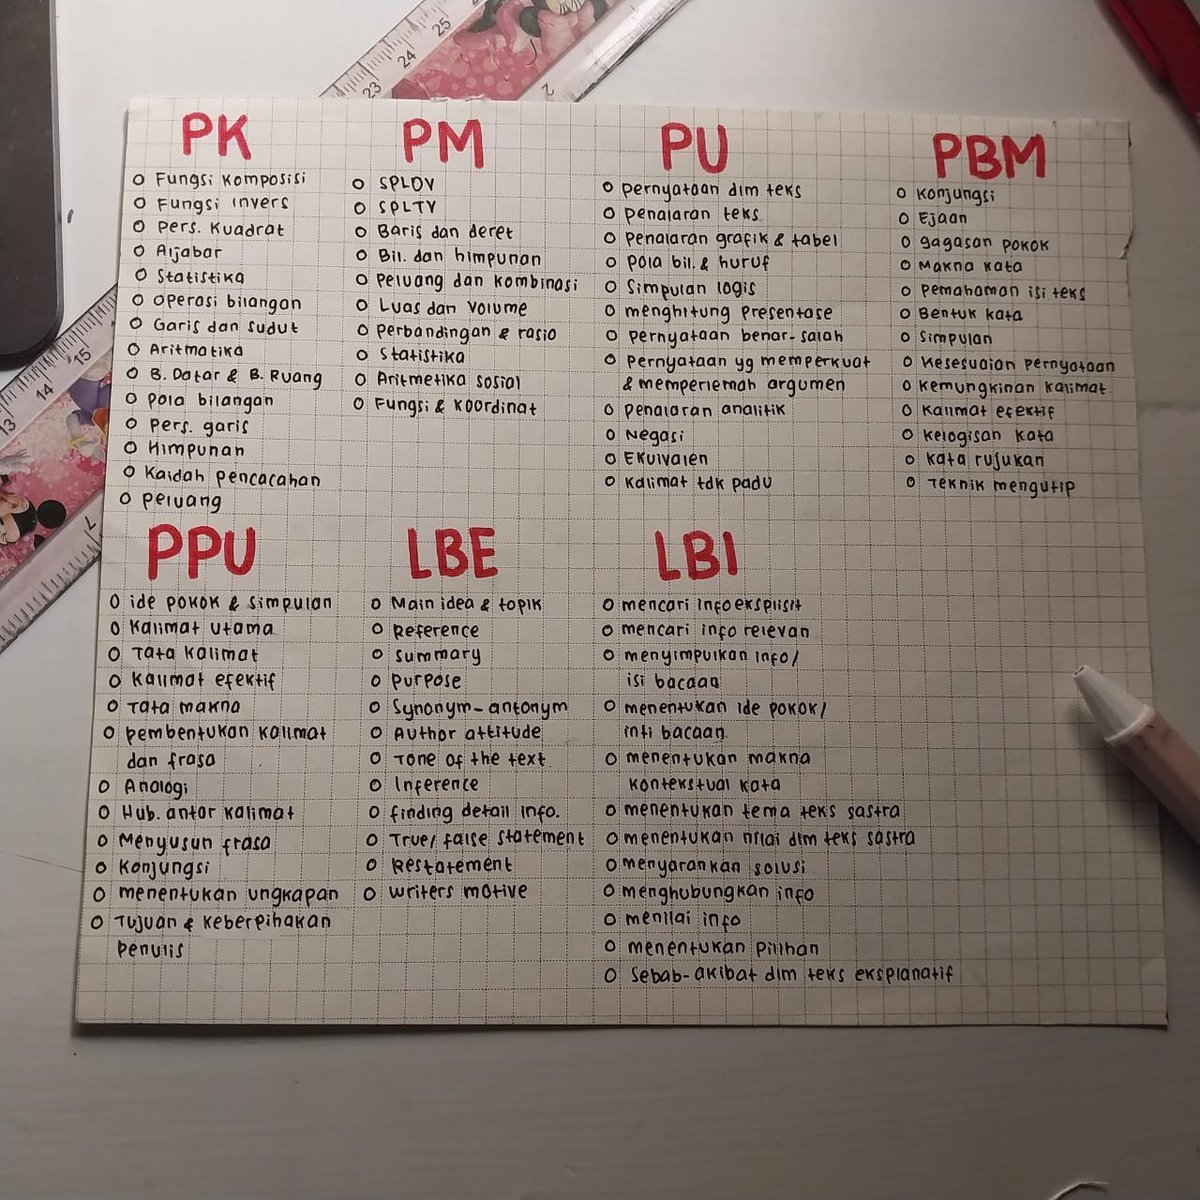 PK
o Fungsi Komposisi
o Fungsi Invers
o Pers. Kuadrat
o Aljabar
o Statistika
o Operasi bilangan
o Garis dan Sudut
o Aritmatika
o B. Datar & B. Ruang
o Pola bilangan
o Pers. garis
o Himpunan
o Kaidah pencacahan
o Peluang
PM
o SPLDV
o SPLTV
o Baris dan deret
o Bil. dan himpunan
o Peluang dan kombinasi
o Luas dan Volume
o Perbandingan & rasio
o Statistika
o Aritmetika sosial
o Fungsi & Koordinat
PU
o pernyataan dlm teks
o Penalaran teks
o Penalaran grafik & tabel
o Pola bil. & huruf
o Simpulan logis
o menghitung Presentase
o pernyataan benar-salah
o Pernyataan yg memperkuat
& memperlemah argumen
o Penalaran analitik
o Negasi
o Ekuivalen
o Kalimat tdk padu
PBM
o Konjungsi
o Ejaan
o gagasan pokok
o Makna kata
o Pemahaman isi teks
o Bentuk kata
o Simpulan
o Kesesuaian pernyataan
o Kemungkinan kalimat
o Kalimat efektif
o Kelogisan kata
o Kata rujukan
o Teknik mengutip
PPU
o ide pokok & simpulan
o Kalimat utama
o Tata kalimat
o Kalimat efektif
o Tata makna
o pembentukan kalimat
dan frasa
o Analogi
o Hub. antar kalimat
o Menyusun frasa
o Konjungsi
o menentukan ungkapan
o Tujuan & keberpihakan
penulis
LBE
o Main idea & topik
o Reference
o Summary
o Purpose
o Synonym-antonym
o Author attitude
o Tone of the text
o Inference
o finding detail info.
o True/false statement
o Restatement
o writers motive
LBI
o mencari info eksplisit
o mencari info relevan
o menyimpulkan info/
isi bacaan
o menentukan ide pokok/
inti bacaan
o menentukan makna
kontekstual kata
o menentukan tema teks sastra
o menentukan nilai dlm teks sastra
o menyarankan solusi
o menghubungkan info
o menilai info
o menentukan pilihan
o Sebab-akibat dlm teks eksplanatif
23 24 25
13 14 15
2
7